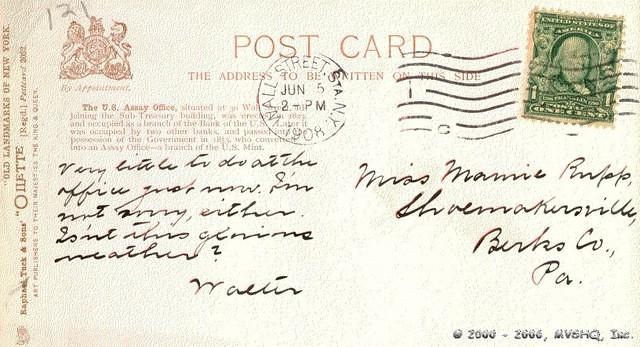 121
By Appointment.
POST CARD
THE ADDRESS TO BE WRITTEN ON THIS SIDE
WALL STREET STA. N.Y.
JUN 5
2 PM
1908
UNITED STATES OF
AMERICA
1 ONE CENT 1
The U.S. Assay Office, situated at 30 Wall
joining the Sub-Treasury building, was erected in 1823
and occupied as a branch of the Bank of the U.S. Later it
was occupied by two other banks, and passed into
possession of the Government in 1853, who converted
into an Assay Office—a branch of the U.S. Mint.
Very little to do at the
office just now. I'm
not sorry, either.
Isn't this glorious
weather?
Walter
Miss Mamie Rupp,
Shoemakersville,
Berks Co.,
Pa.
"OLD LANDMARKS OF NEW YORK.
Raphael Tuck & Sons' "OILETTE" [Regd.] Postcard 2062.
ART PUBLISHERS TO THEIR MAJESTIES THE KING & QUEEN.
© 2000 - 2006, MVSHQ, Inc.